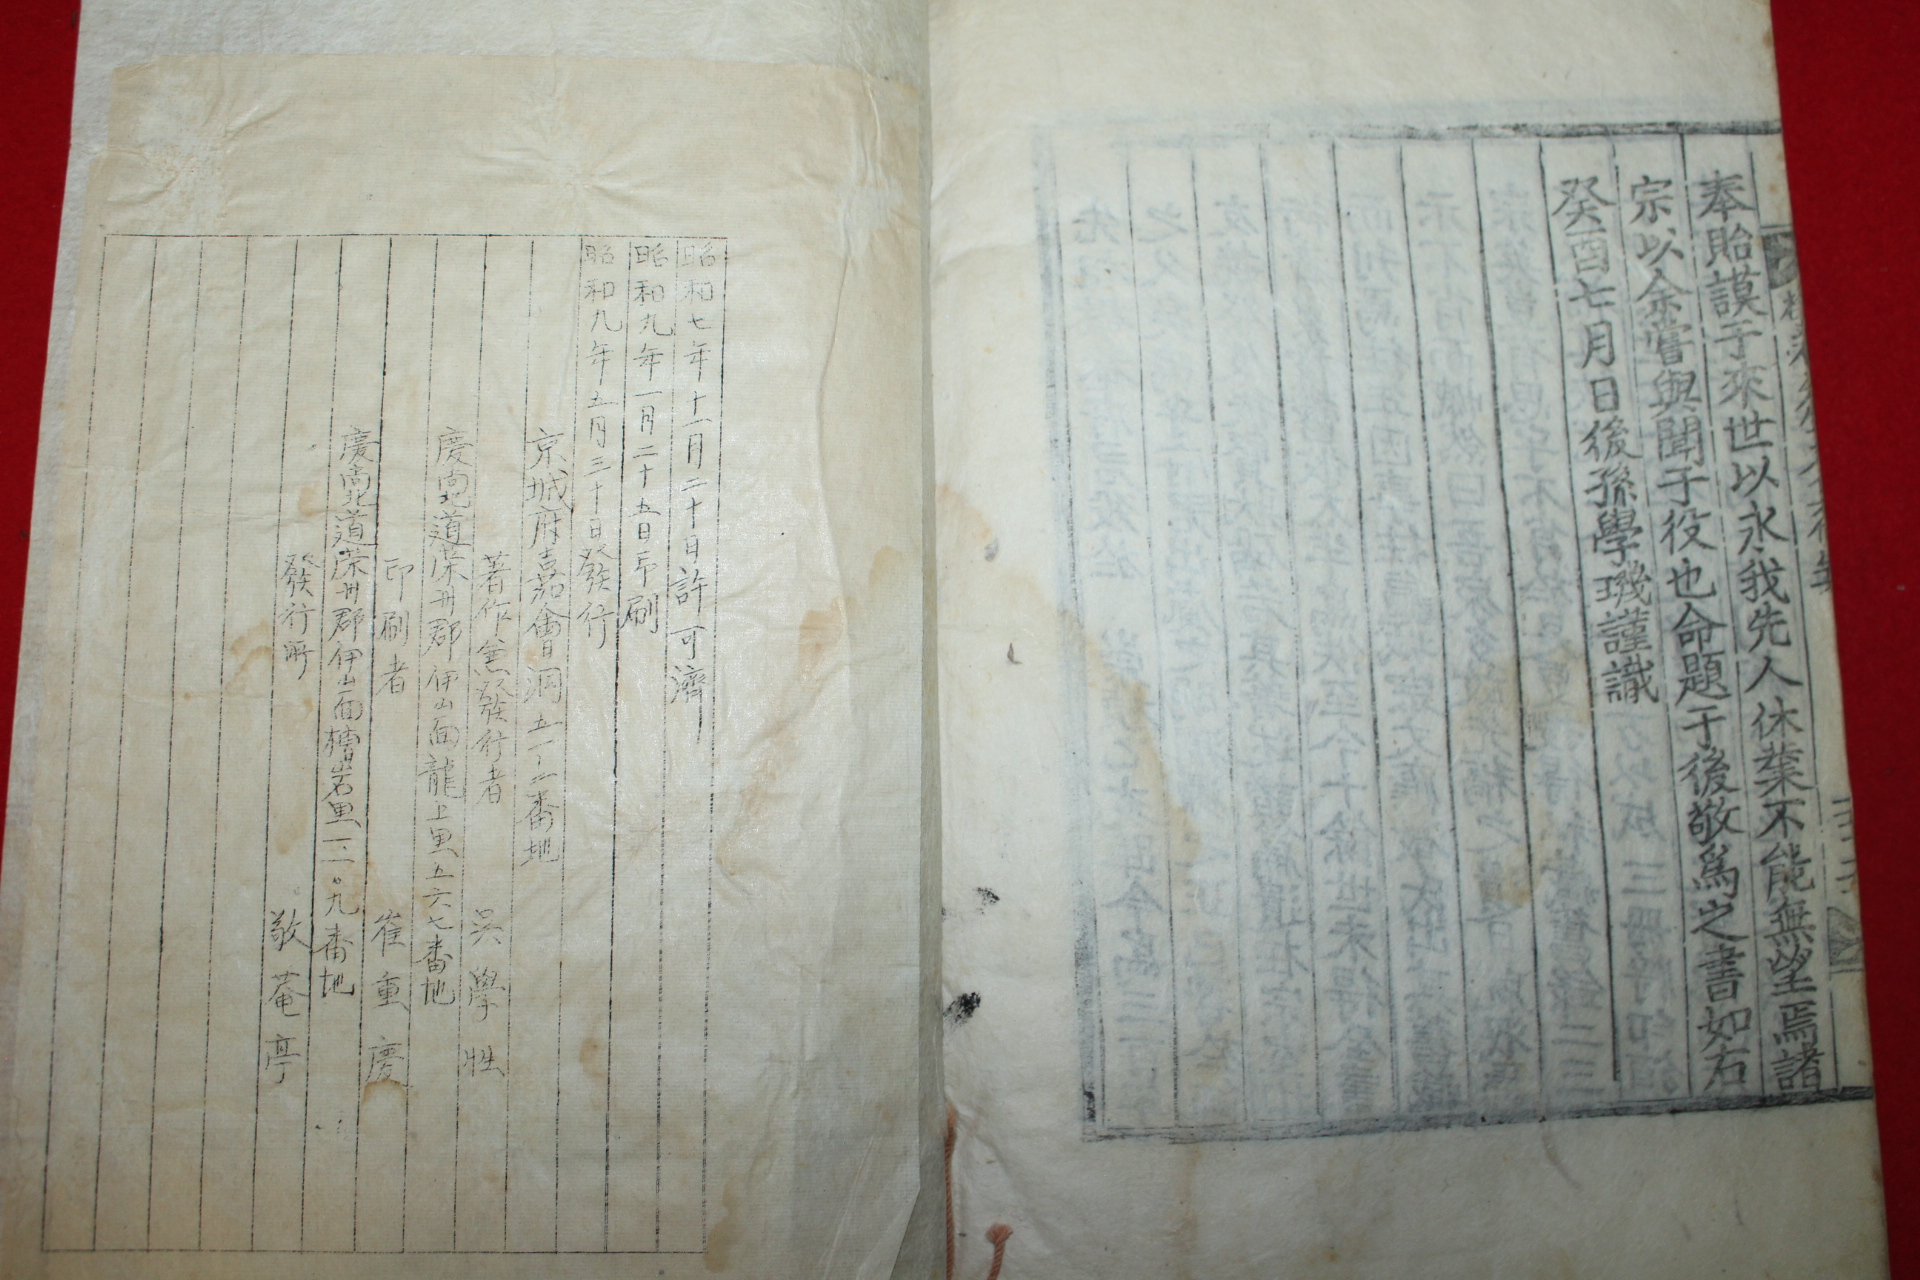 奉貽謨于來世以永我先人休業不能無望焉諸
宗以余嘗與聞于役也命題于後敬爲之書如右
癸酉七月日後孫學璣謹識
昭和七年十一月二十日許可濟
昭和九年一月二十五日印刷
昭和九年五月三十日發行
京城府嘉會洞五一ノ二番地
著作兼發行者 吳學性
慶尙北道榮州郡伊山面龍上里五六七番地
印刷者 崔重慶
慶尙北道榮州郡伊山面槽岩里一二〇九番地
發行所 敬菴亭